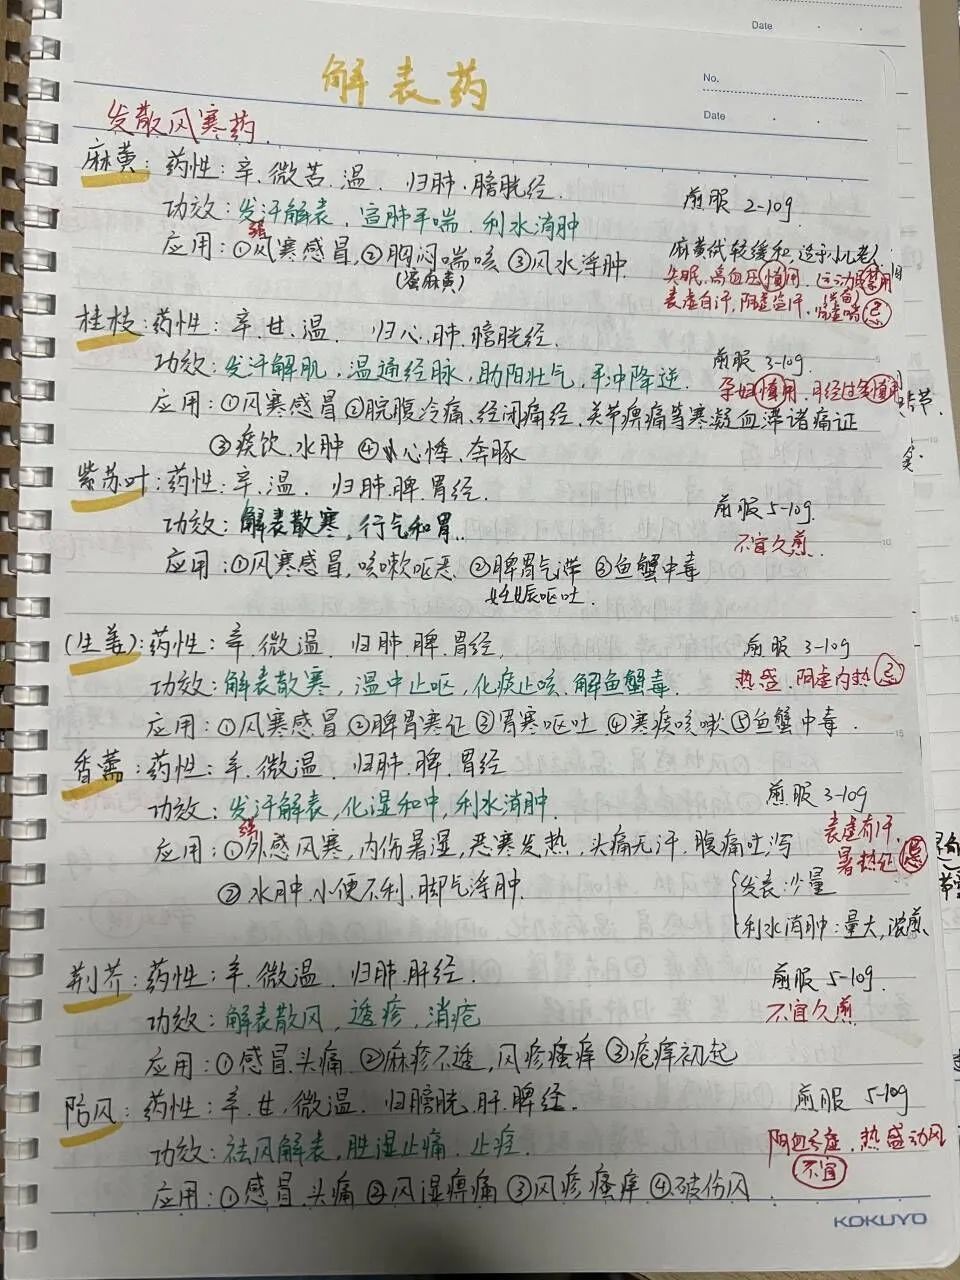 Date
解表药
No.
Date
发散风寒药
麻黄：药性：辛.微苦.温. 归肺.膀胱经
煎服 2-10g
功效：发汗解表，宣肺平喘.利水消肿
强
应用：①风寒感冒，②胸闷喘咳 ③风水浮肿.
(蜜麻黄)
麻黄代较缓和，适于小儿老人
失眠、高血压慎用. 运动员禁用
表虚自汗，阴虚盗汗. 忌
桂枝：药性：辛.甘.温 归心.肺.膀胱经.
功效：发汗解肌，温通经脉，助阳壮气，平冲降逆.
煎服 3-10g.
孕妇慎用.月经过多慎用
应用：①风寒感冒 ②脘腹冷痛、经闭痛经、关节痹痛等寒凝血滞诸痛证
③痰饮.水肿 ④心悸、奔豚
紫苏叶：药性：辛.温. 归肺.脾.胃经.
煎服 5-10g.
功效：解表散寒，行气和胃.
不宜久煎.
应用：①风寒感冒，咳嗽呕恶 ②脾胃气滞 ③鱼蟹中毒
妊娠呕吐.
(生姜)：药性：辛.微温. 归肺.脾.胃经.
煎服 3-10g
功效：解表散寒，温中止呕，化痰止咳.解鱼蟹毒.
热盛.阴虚内热 忌
应用：①风寒感冒 ②脾胃寒证 ③胃寒呕吐 ④寒痰咳嗽 ⑤鱼蟹中毒.
香薷：药性：辛.微温. 归肺.脾.胃经
煎服 3-10g
功效：发汗解表，化湿和中，利水消肿.
强
表虚有汗.
应用：①外感风寒，内伤暑湿，恶寒发热，头痛无汗.腹痛吐泻
暑热证 忌
②水肿.小便不利.脚气浮肿.
发表：少量
利水消肿：量大，浓煎
荆芥：药性：辛.微温 归肺.肝经.
煎服 5-10g
功效：解表散风，透疹，消疮
不宜久煎
应用：①感冒.头痛 ②麻疹不透，风疹瘙痒 ③疮疡初起
防风：药性：辛.甘.微温. 归膀胱.肝.脾经.
煎服 5-10g
功效：祛风解表，胜湿止痛.止痉.
阴血亏虚.热盛动风
不宜
应用：①感冒.头痛 ②风湿痹痛 ③风疹瘙痒 ④破伤风
KOKUYO